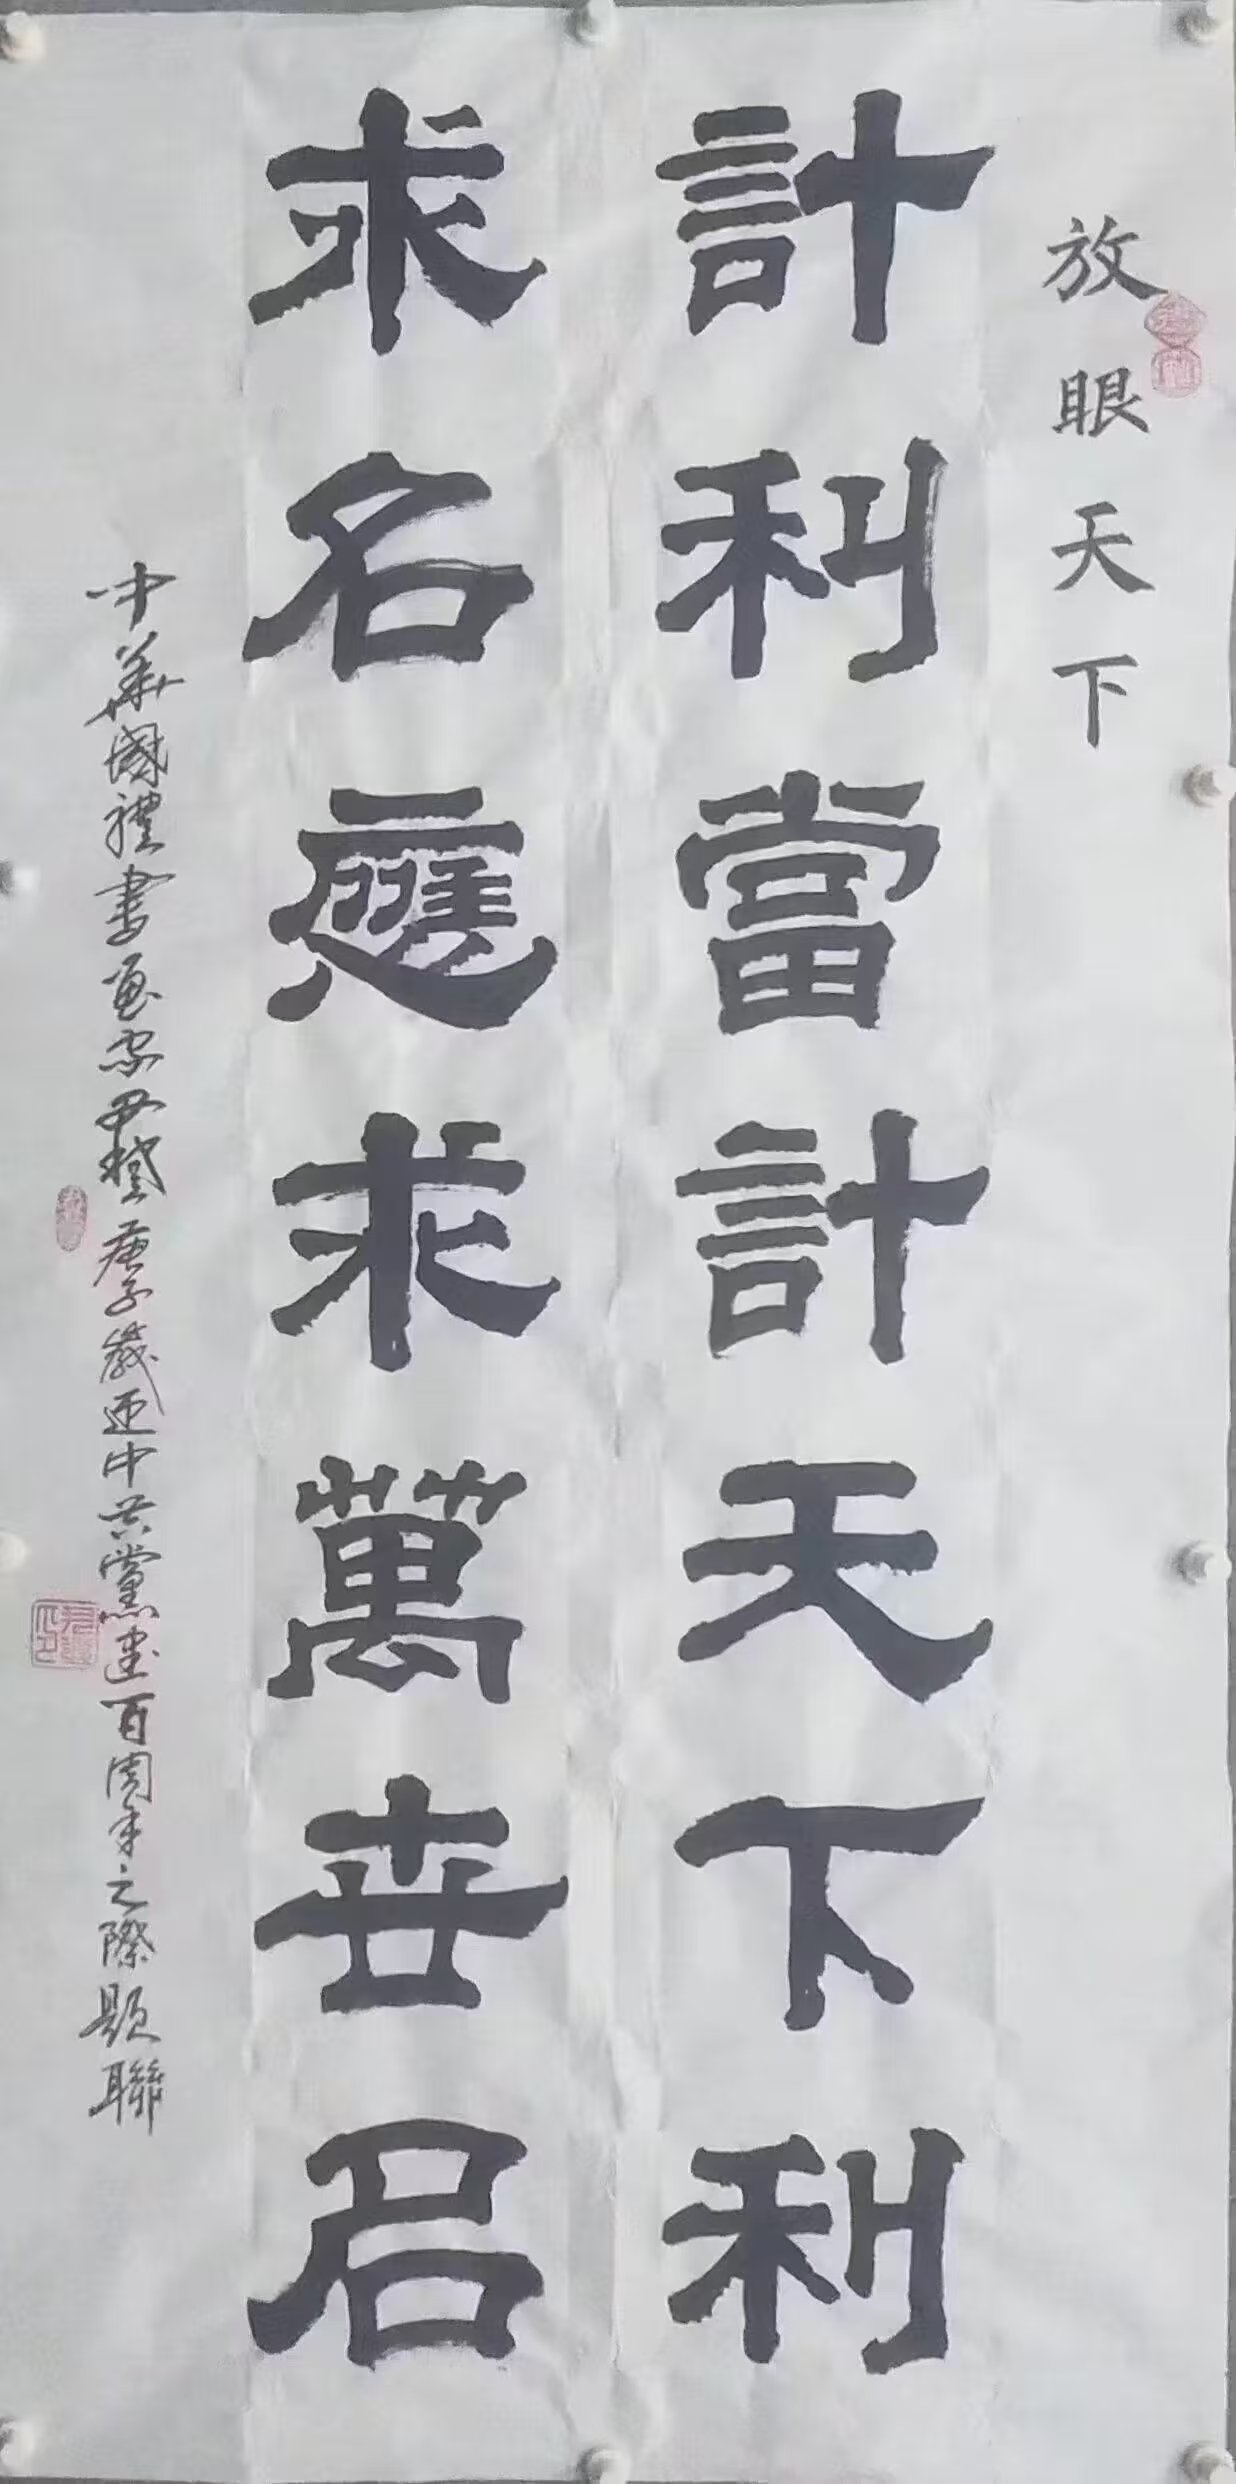 放眼天下
計利當計天下利
求名應求萬世名
中華國禮書畫家尹懋庚子歲迎中共黨建百周年之際題聯